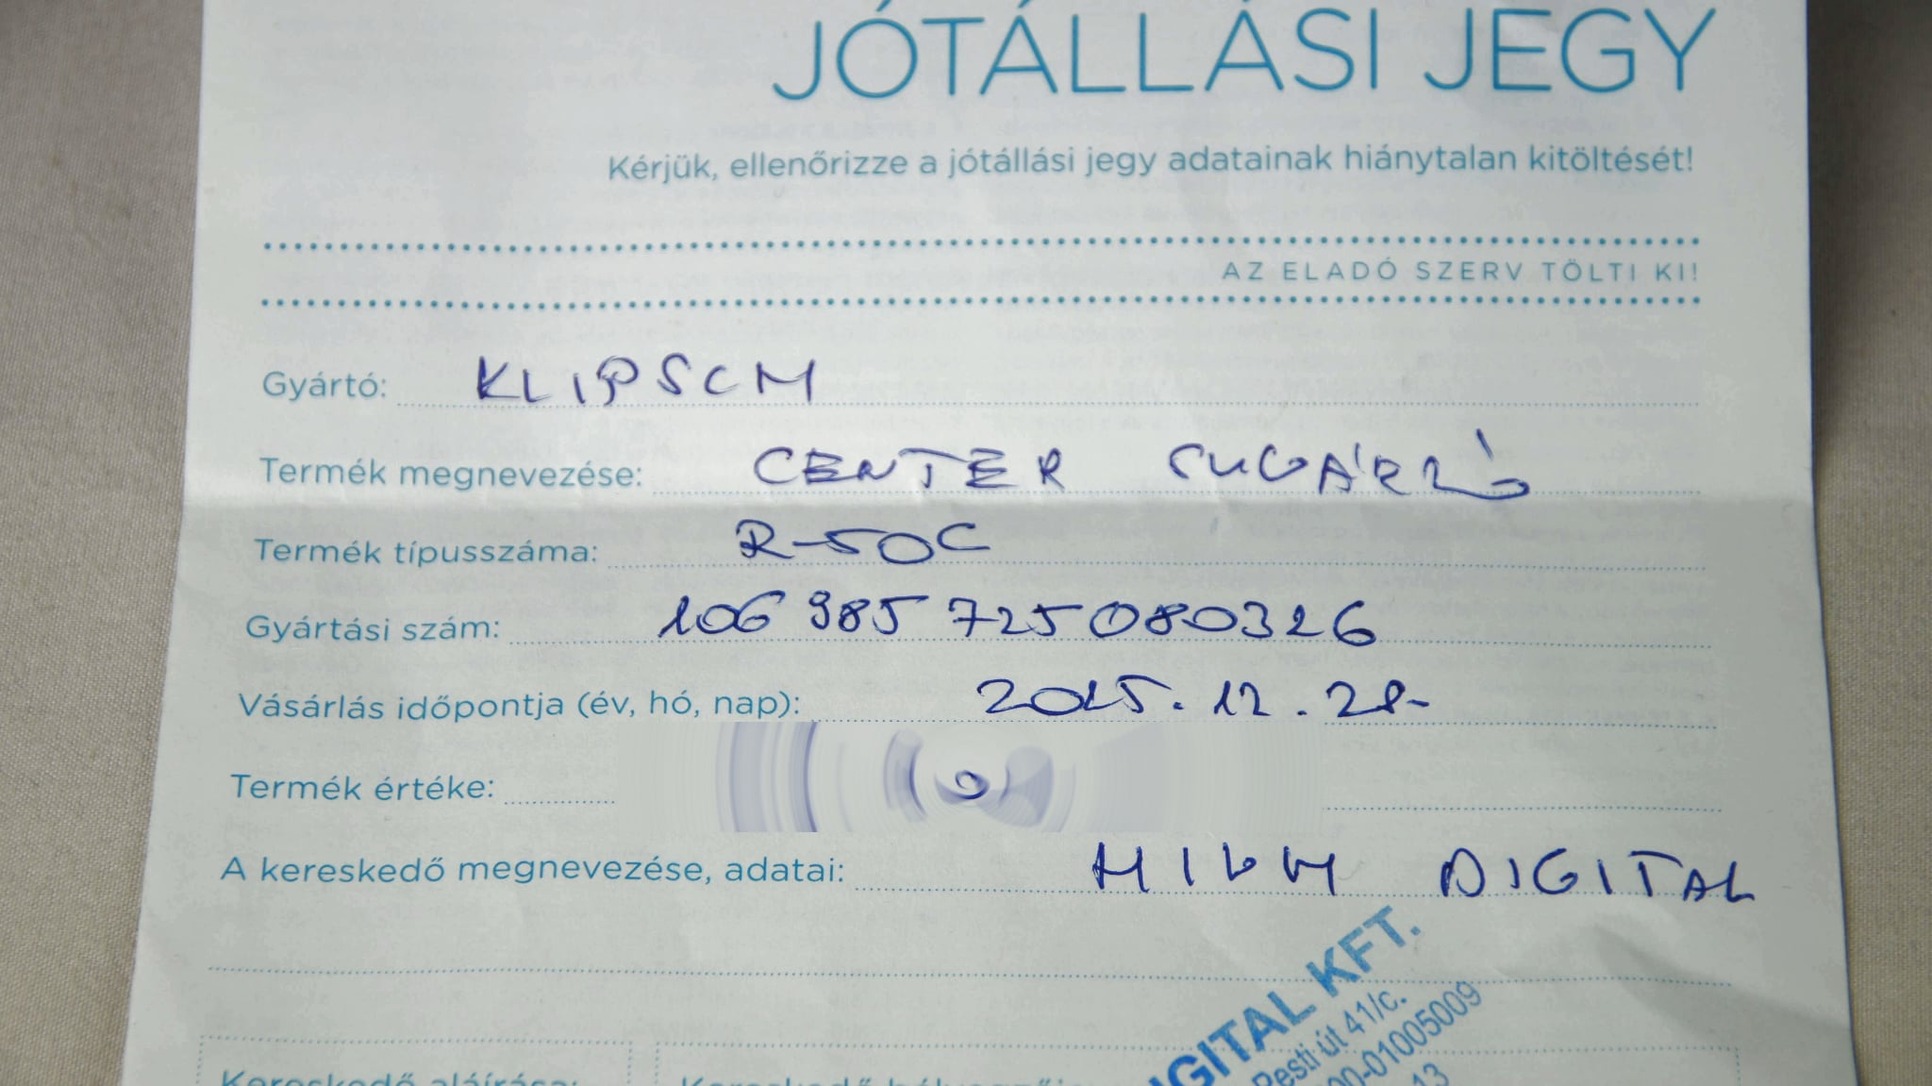 JÓTÁLLÁSI JEGY
Kérjük, ellenőrizze a jótállási jegy adatainak hiánytalan kitöltését!
AZ ELADÓ SZERV TÖLTI KI!
Gyártó: KLIPSCH
Termék megnevezése: CENTER SUGÁRZÓ
Termék típusszáma: R-50C
Gyártási szám: 106985725080326
Vásárlás időpontja (év, hó, nap): 2025.12.28.
Termék értéke:
A kereskedő megnevezése, adatai: DIGITAL
GITAL KFT.
Pesti út 41/c.
00-01005009
13
Kereskedő aláírása: